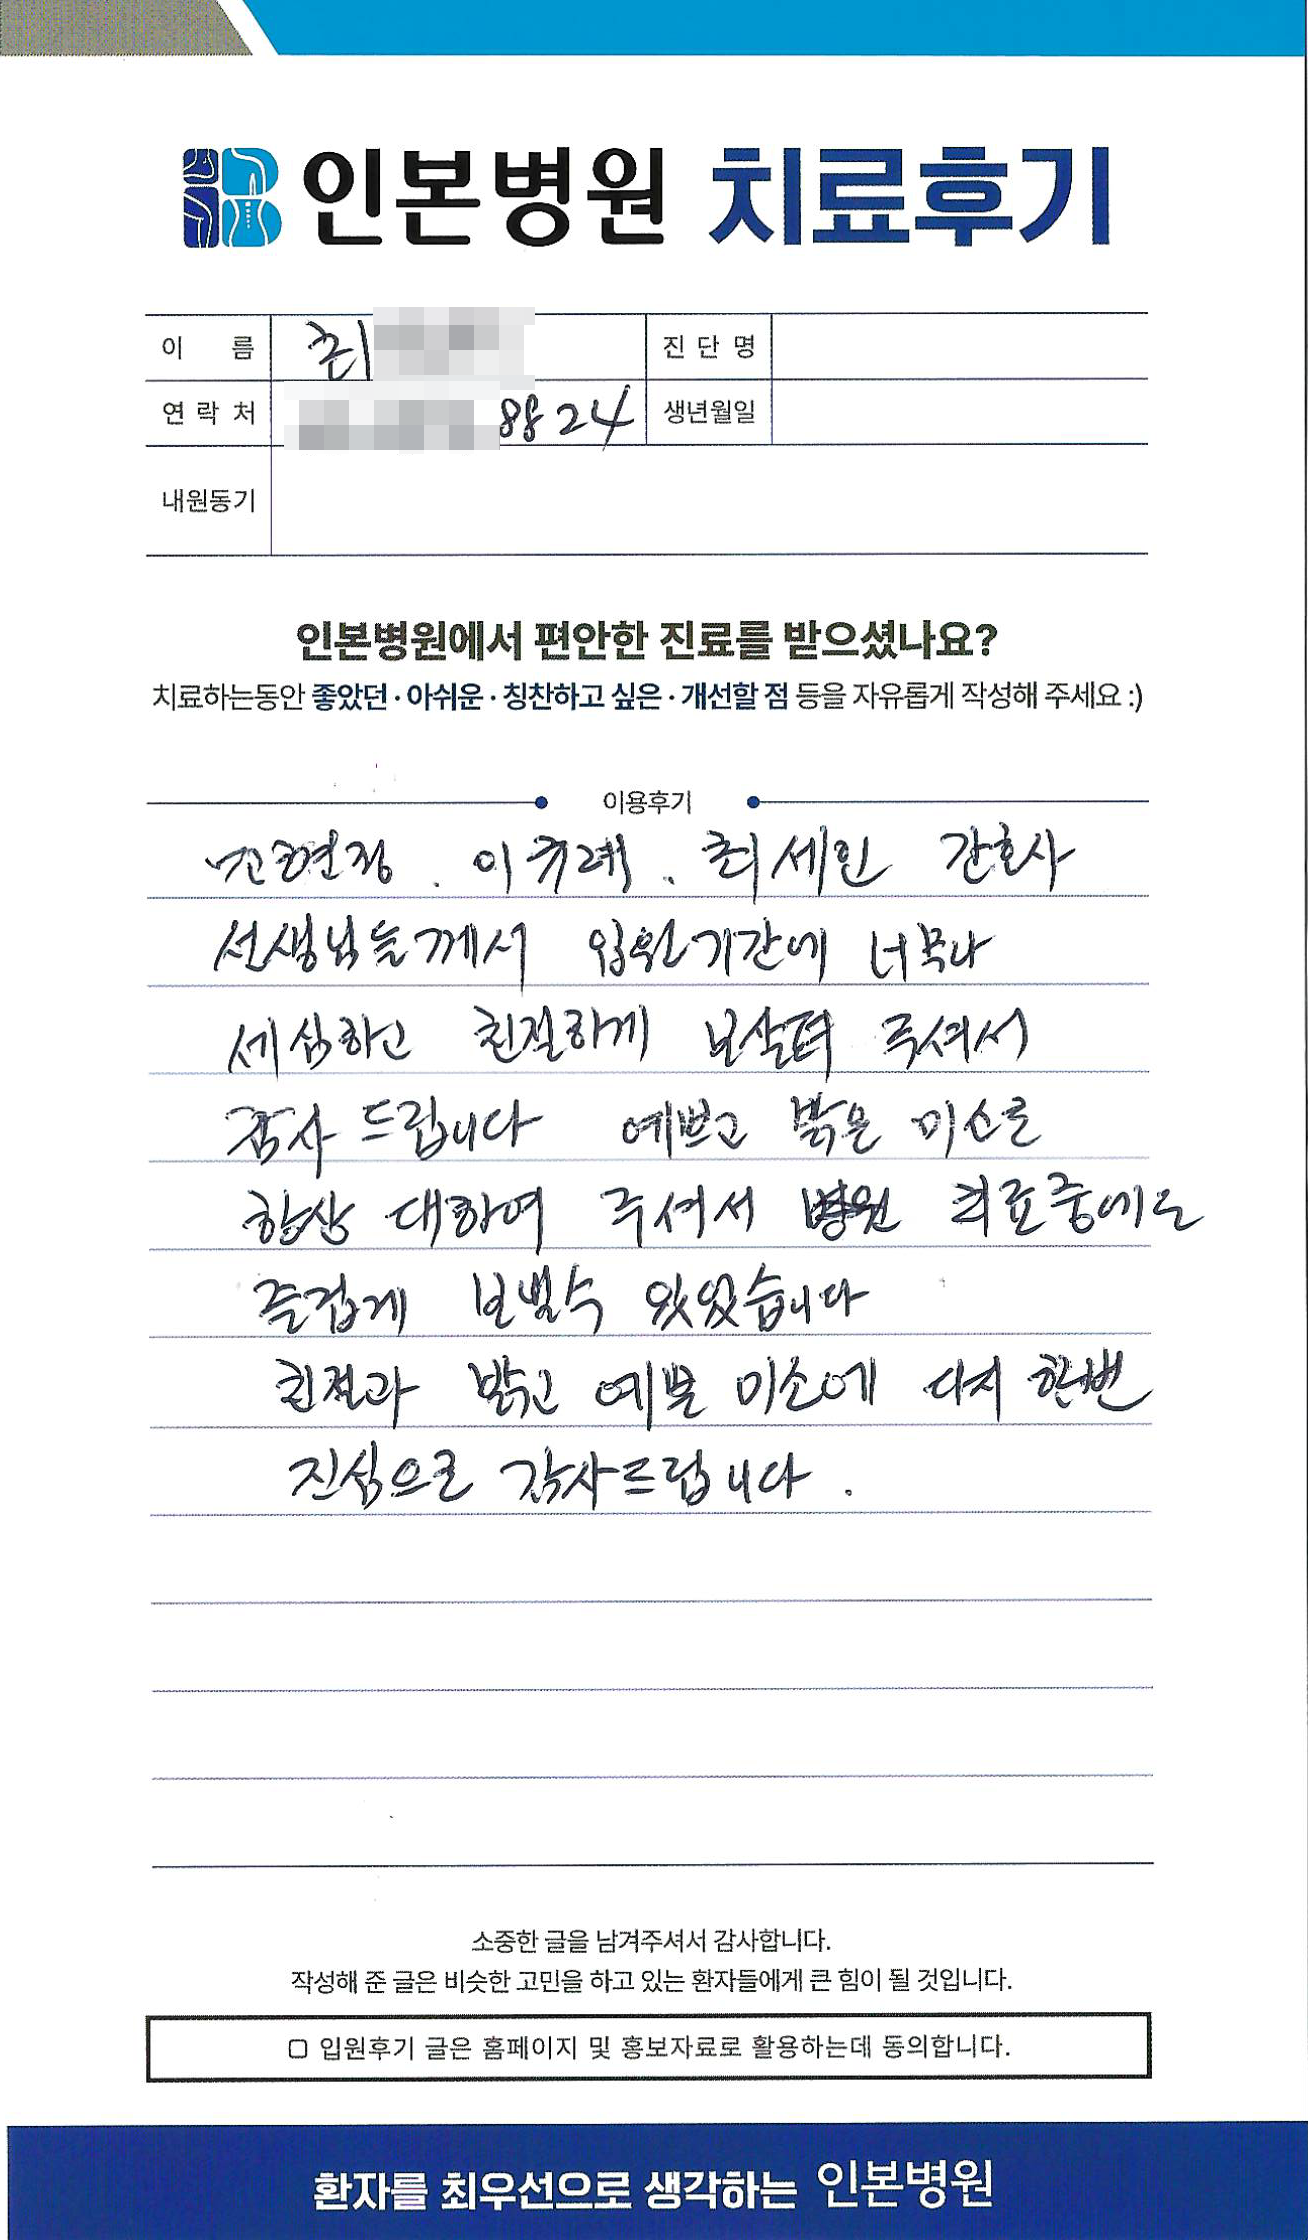 인본병원 치료후기
이 름 최 진 단 명
연 락 처 8824 생년월일
내원동기
인본병원에서 편안한 진료를 받으셨나요?
치료하는동안 좋았던 · 아쉬운 · 칭찬하고 싶은 · 개선할 점 등을 자유롭게 작성해 주세요 :)
이용후기
. . 최세인 간호사
선생님들께서 입원기간에 너무나
세심하고 친절하게 보살펴 주셔서
감사 드립니다 예쁘고 밝은 미소로
항상 대하여 주셔서 병원 치료중에도
즐겁게 보낼수 있었습니다
친절과 밝고 예쁜 미소에 다시 한번
진심으로 감사드립니다.
소중한 글을 남겨주셔서 감사합니다.
작성해 준 글은 비슷한 고민을 하고 있는 환자들에게 큰 힘이 될 것입니다.
입원후기 글은 홈페이지 및 홍보자료로 활용하는데 동의합니다.
환자를 최우선으로 생각하는 인본병원